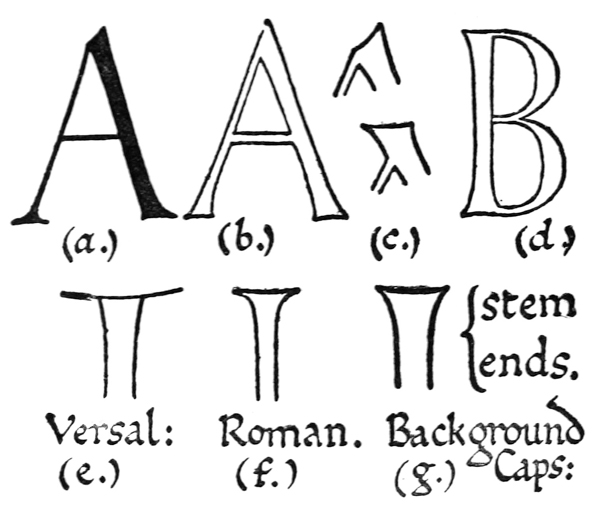 A A B
(a.) (b.) (c.) (d.)
{stem
ends.
Versal: Roman. Background
Caps:
(e.) (f.) (g.)